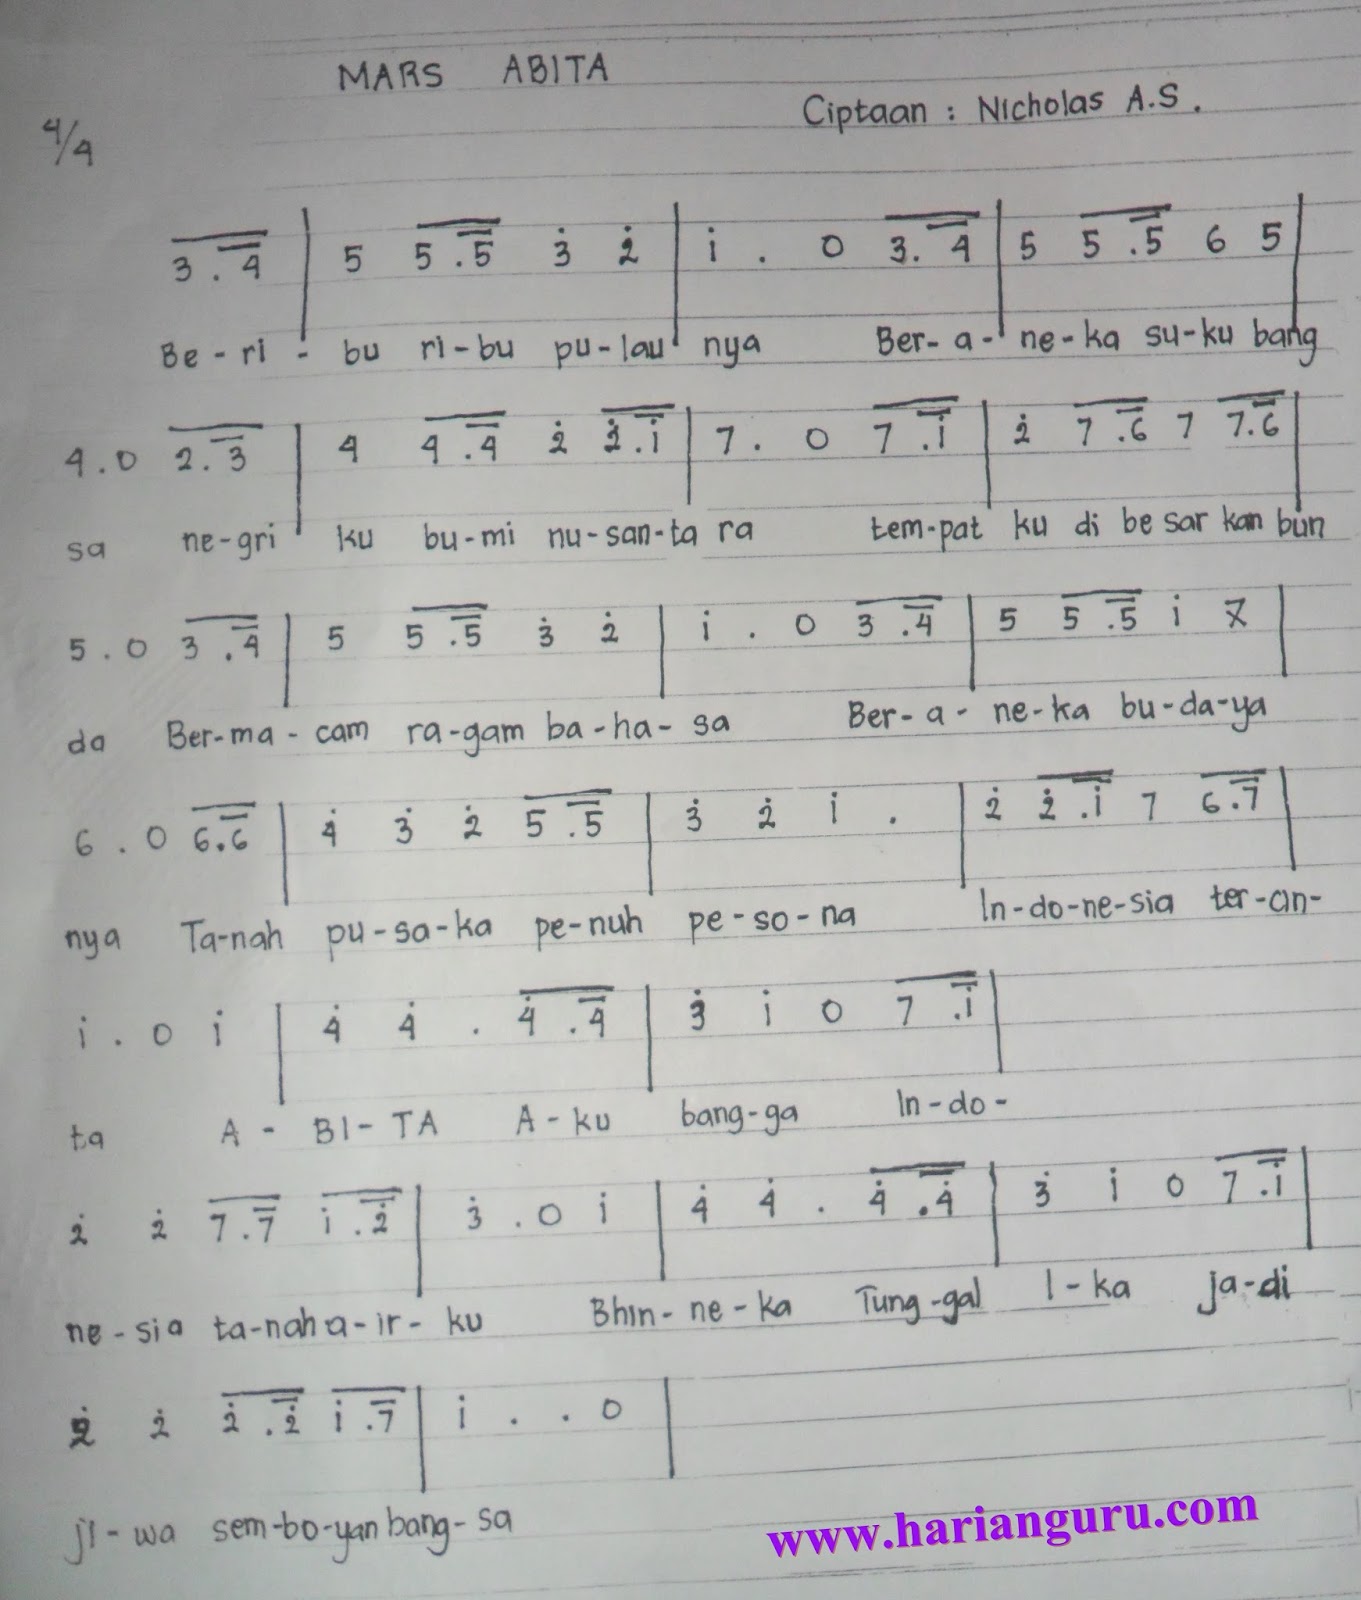 MARS ABITA
Ciptaan : Nicholas A.S.
4/4
3 . 4 | 5 5 . 5 3̇ 2̇ | i . 0 3 . 4 | 5 5 . 5 6 5 |
Be - ri - bu ri - bu pu - lau nya Ber - a - ne - ka su - ku bang
4 . 0 2 . 3 | 4 4 . 4 2̇ 2̇ . i | 7 . 0 7 . i | 2̇ 7 . 6 7 7 . 6 |
sa ne - gri ku bu - mi nu - san - ta ra tem - pat ku di be sar kan bun
5 . 0 3 . 4 | 5 5 . 5 3̇ 2̇ | i . 0 3 . 4 | 5 5 . 5 i 7 |
da Ber - ma - cam ra - gam ba - ha - sa Ber - a - ne - ka bu - da - ya
6 . 0 6 . 6 | 4̇ 3̇ 2̇ 5 . 5 | 3̇ 2̇ i . | 2̇ 2̇ . i 7 6 . 7 |
nya Ta - nah pu - sa - ka pe - nuh pe - so - na In - do - ne - sia ter - cin -
i . 0 i | 4̇ 4̇ . 4̇ . 4̇ | 3̇ i 0 7 . i |
ta A - BI - TA A - ku bang - ga In - do -
2̇ 2̇ 7 . 7 i . 2̇ | 3̇ . 0 i | 4̇ 4̇ . 4̇ . 4̇ | 3̇ i 0 7 . i |
ne - sia ta - nah a - ir - ku Bhin - ne - ka Tung - gal I - ka ja - di
2̇ 2̇ 2̇ . 2̇ i . 7 | i . . 0 |
ji - wa sem - bo - yan bang - sa
www.harianguru.com